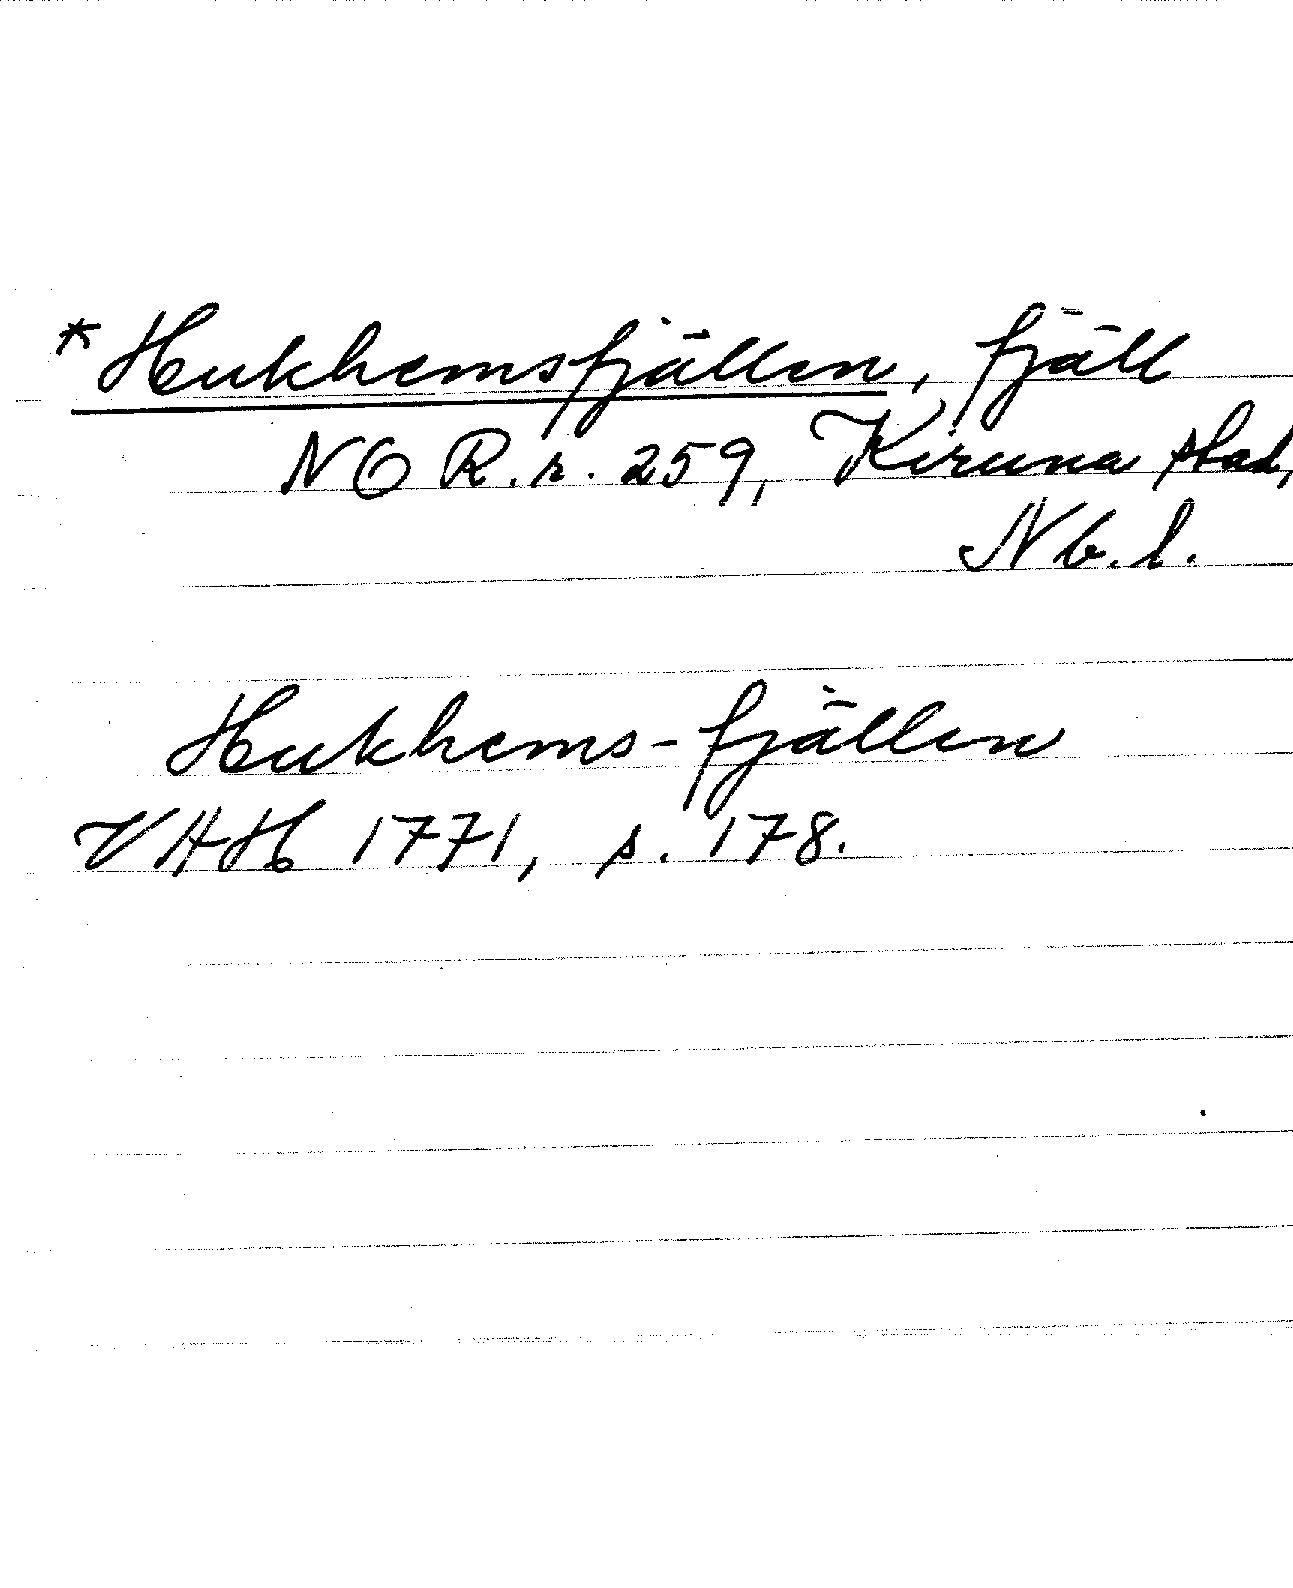 *Hukhemsfjällen, fjäll
NO R.r. 259, Kiruna stad,
Nb.l.
Hukhems-fjällen
VAH 1771, s. 178.